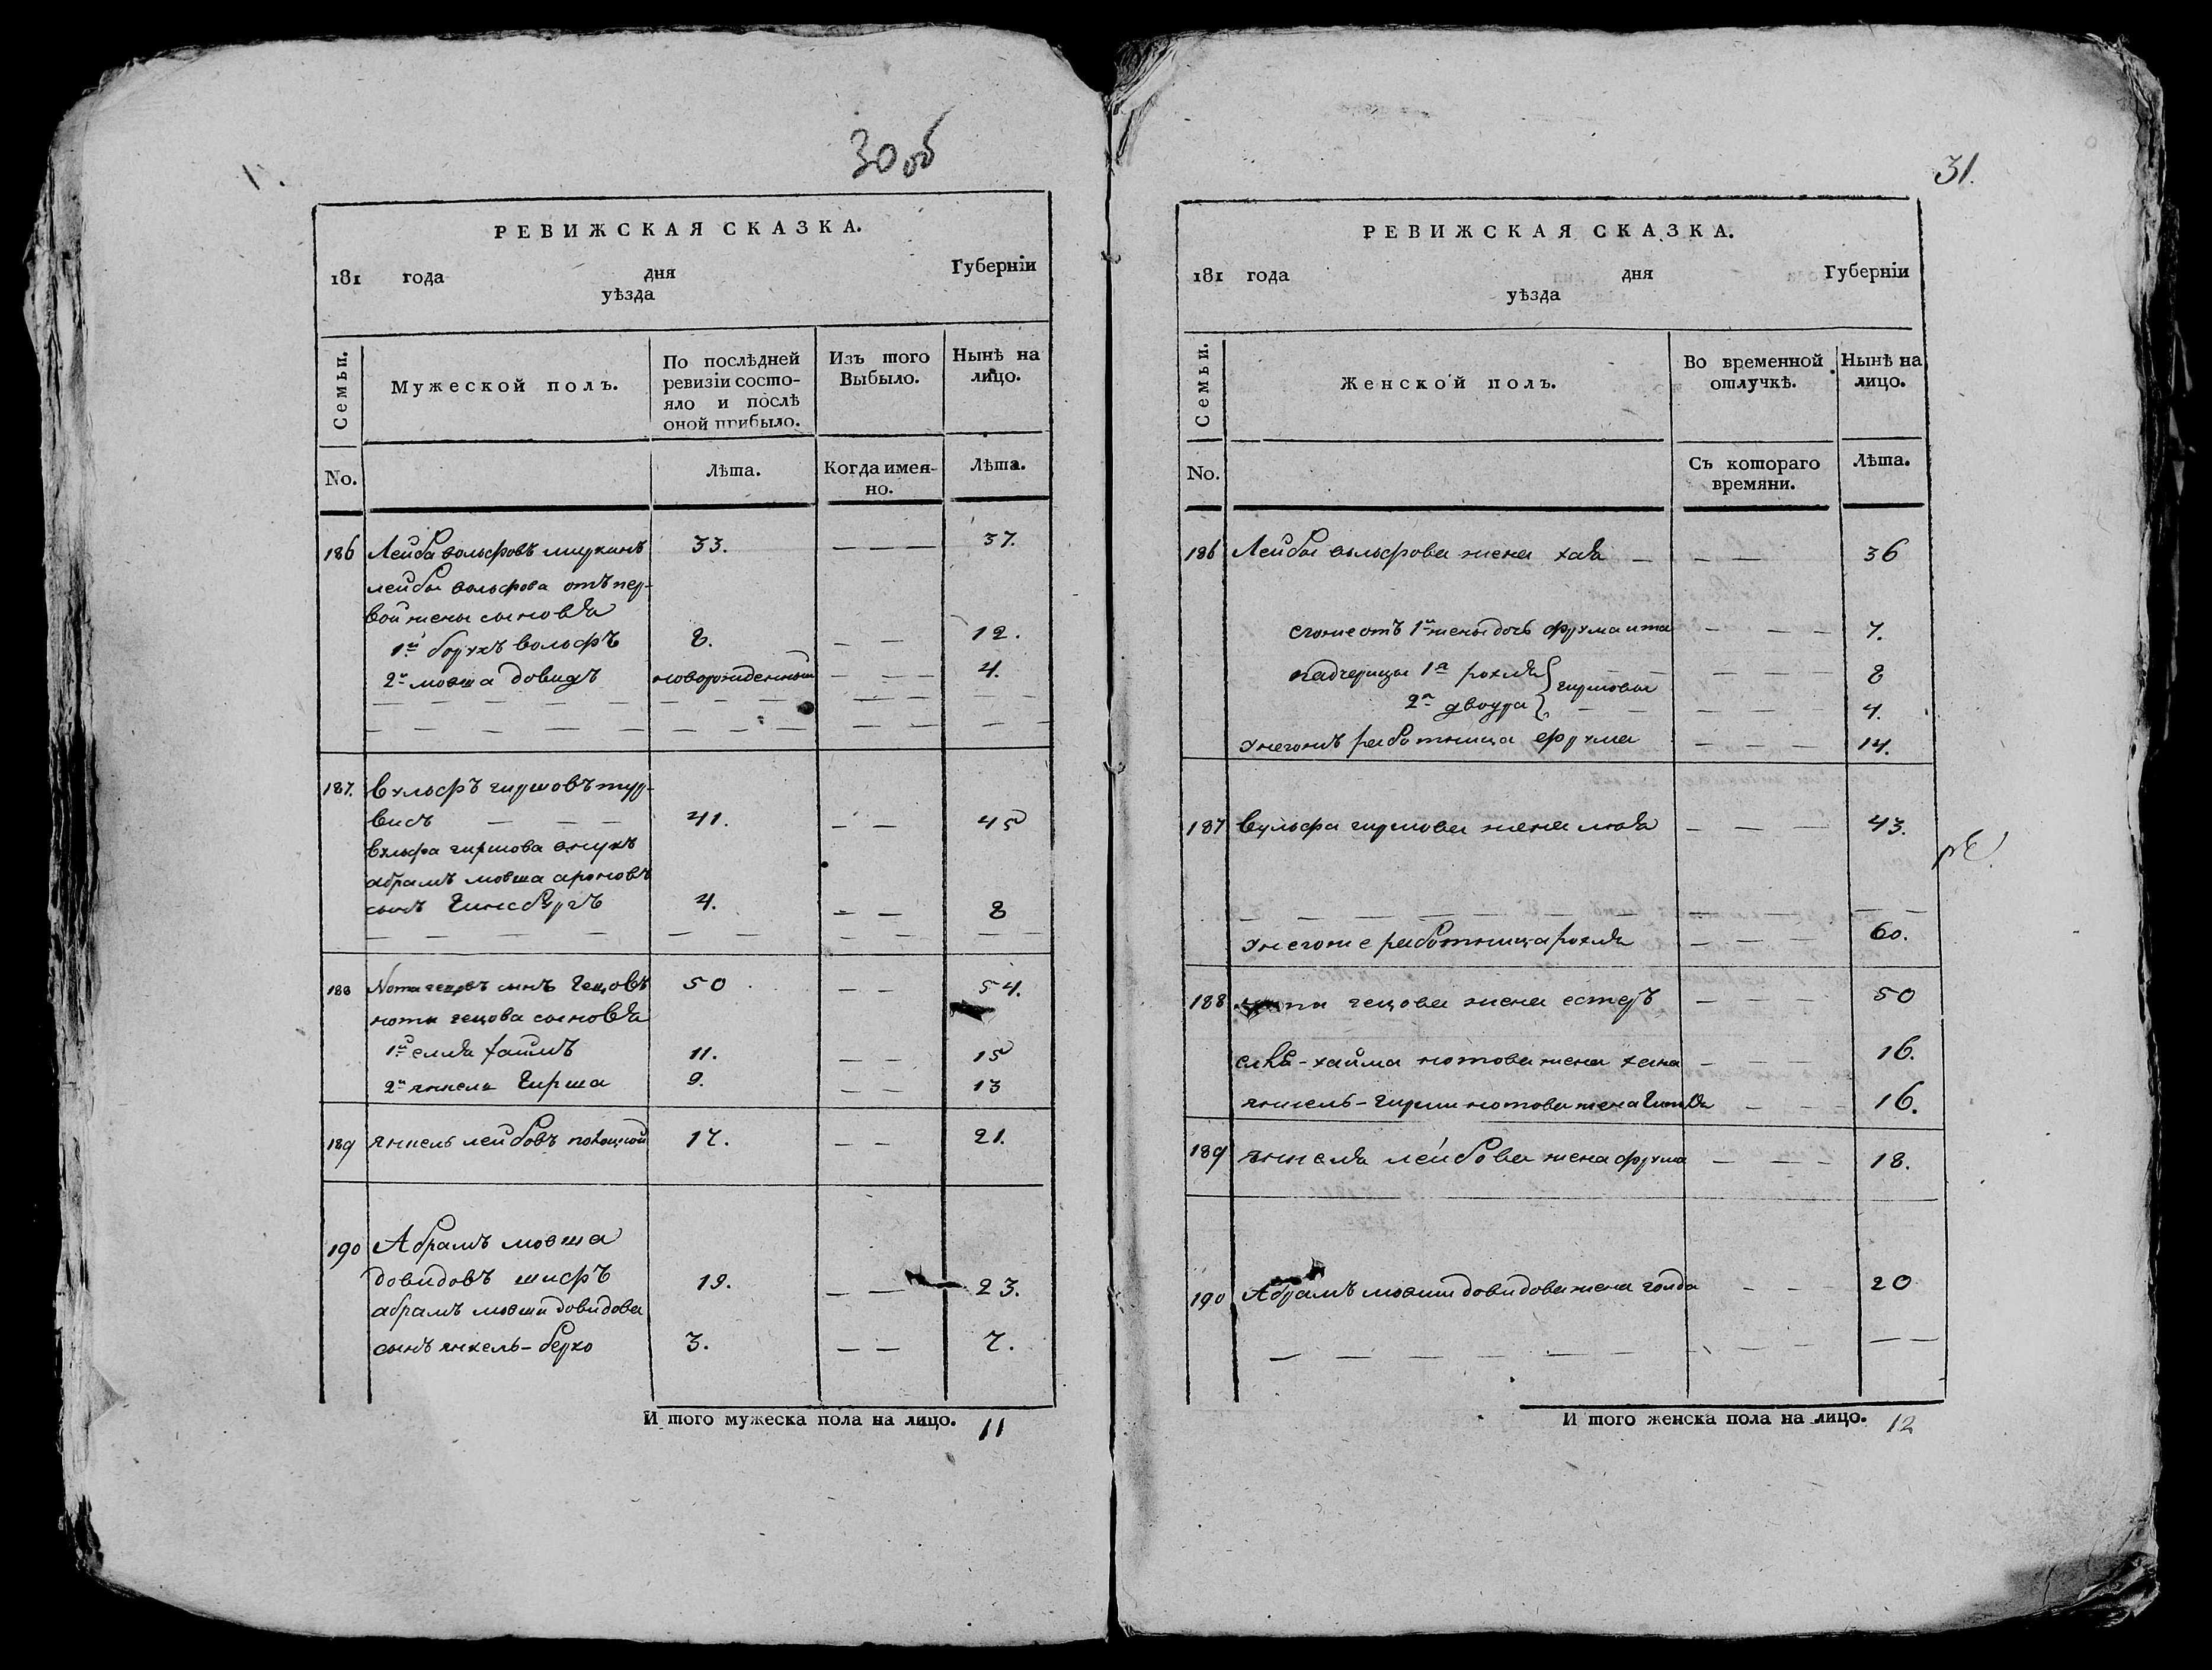 30 об
РЕВИЖСКАЯ СКАЗКА.
181 года дня Губерніи
уѣзда
Семьи.
Мужеской полъ.
По послѣдней ревизіи состо-
яло и послѣ оной прибыло.
Изъ того Выбыло.
Нынѣ на лицо.
No.
Лѣта.
Когда имен-
но.
Лѣта.
186 Лейба вольфовъ 33. — — — 37.
лейбы вольфова отъ пер-
вой жены сыновья
1й борухъ вольфъ 8. — — 12.
2й мовша довидъ новорожденный — — — 4.
187. вульфъ гиршовъ тур-
висъ — — — 41. — — 45
вульфа гиршова внукъ
абрамъ мовша ароновъ
сынъ Гинсбургъ 4. — — 8
188 Нота гецовъ сынъ Гецовъ 50 — — 54.
ноты гецова сыновья
1й елья хаимъ 11. — — 15
2й янкель Гирша 9. — — 13
189 янкель лейбовъ полоцкой 17. — — 21.
190 Абрамъ мовша
довидовъ шифъ 19. — — 23.
абрамъ мовши довидова
сынъ янкель-берко 3. — — 7.
И того мужеска пола на лицо. 11
31.
РЕВИЖСКАЯ СКАЗКА.
181 года дня Губерніи
уѣзда
Семьи.
Женской полъ.
Во временной отлучкѣ.
Нынѣ на лицо.
No.
Съ котораго времяни.
Лѣта.
186 Лейбы вольфова жена хая — — — 36
егоже отъ 1й жены дочь фрума ита — — — 7.
падчерицы 1я рохля } гиршовы — — — 8
2я двоура — — — 4.
унегожъ работница фрума — — — 14.
187 вульфа гиршова жена — — — 43.
унегоже работница рохля — — — 60.
188 ноты гецова жена естеръ — — — 50
елья-хайма нотова жена хана — — — 16.
янкель-гирши нотова жена — — — 16.
189 янкеля лейбова жена фрума — — — 18.
190 Абрамъ мовши довидова жена голда — — 20
И того женска пола на лицо. 12